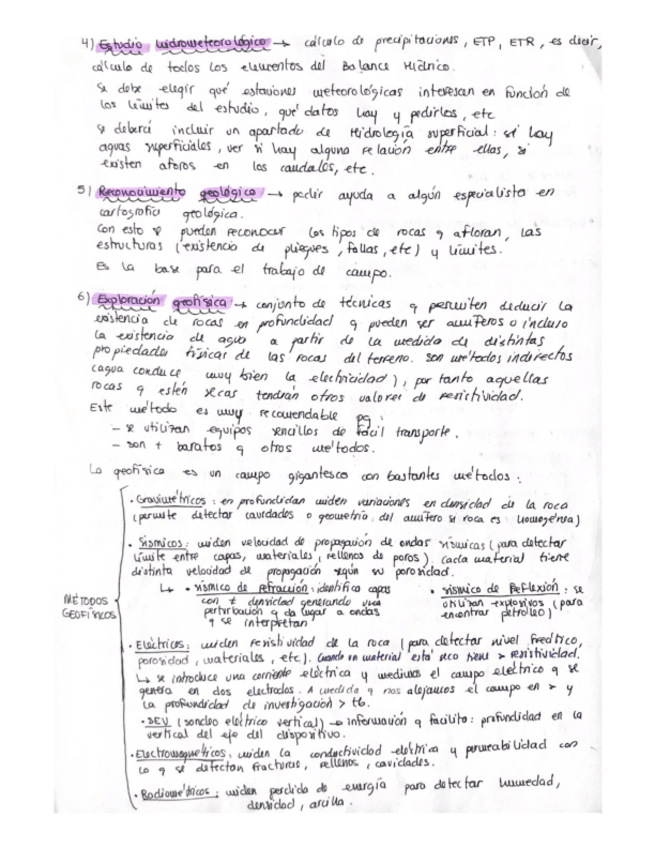 4) Estudio hidrometeorológico → cálculo de precipitaciones, ETP, ETR, es decir,
cálculo de todos los elementos del Balance Hídrico.
Se debe elegir qué estaciones meteorológicas interesan en función de
los límites del estudio, qué datos hay y pedirlos, etc
Se deberá incluir un apartado de Hidrología superficial: si hay
aguas superficiales, ver si hay alguna relación entre ellas, si
existen aforos en los caudales, etc.
5) Reconocimiento geológico → pedir ayuda a algún especialista en
cartografía geológica.
Con esto se pueden reconocer los tipos de rocas q afloran, las
estructuras (existencia de pliegues, fallas, etc) y límites.
Es la base para el trabajo de campo.
6) Exploración geofísica → conjunto de técnicas q permiten deducir la
existencia de rocas en profundidad q pueden ser acuíferos o incluso
la existencia de agua a partir de la medida de distintas
propiedades físicas de las rocas del terreno. Son métodos indirectos
(agua conduce muy bien la electricidad), por tanto aquellas
rocas q estén secas tendrán otros valores de resistividad.
Este método es muy recomendable pq:
– se utilizan equipos sencillos de fácil transporte.
– son + baratos q otros métodos.
La geofísica es un campo gigantesco con bastantes métodos:
MÉTODOS GEOFÍSICOS
· Gravimétricos: en profundidan miden variaciones en densidad de la roca
(permite detectar cavidades o geometría del acuífero si roca es homogénea)
· Sísmicos: miden velocidad de propagación de ondas sísmicas (para detectar
límite entre capas, materiales, rellenos de poros) cada material tiene
distinta velocidad de propagación según su porosidad.
↳ · sísmico de refracción: identifica capas
con ≠ densidad generando una
perturbación q da lugar a ondas
q se interpretan
· sísmico de Reflexión: se
utilizan explosivos (para
encontrar petróleo)
· Eléctricos: miden resistividad de la roca (para detectar nivel freático,
porosidad, materiales, etc). Cuando un material está seco tiene > resistividad.
↳ se introduce una corriente eléctrica y medimos el campo eléctrico q se
genera en dos electrodos. A medida q nos alejamos el campo en > y
la profundidad de investigación > tb.
· SEV (sondeo eléctrico vertical) → información q facilita: profundidad en la
vertical del eje del dispositivo.
· Electromagnéticos: miden la conductividad eléctrica y permeabilidad con
lo q se detectan fracturas, rellenos, cavidades.
· Radiométricos: miden perdida de energía para detectar humedad,
densidad, arcilla.